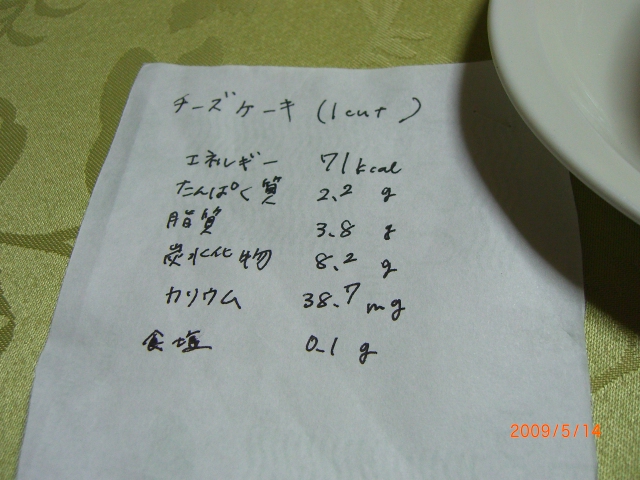 チーズケーキ (1cut)
エネルギー 71kcal
たんぱく質 2.2 g
脂質 3.8 g
炭水化物 8.2 g
カリウム 38.7 mg
食塩 0.1 g
2009/5/14